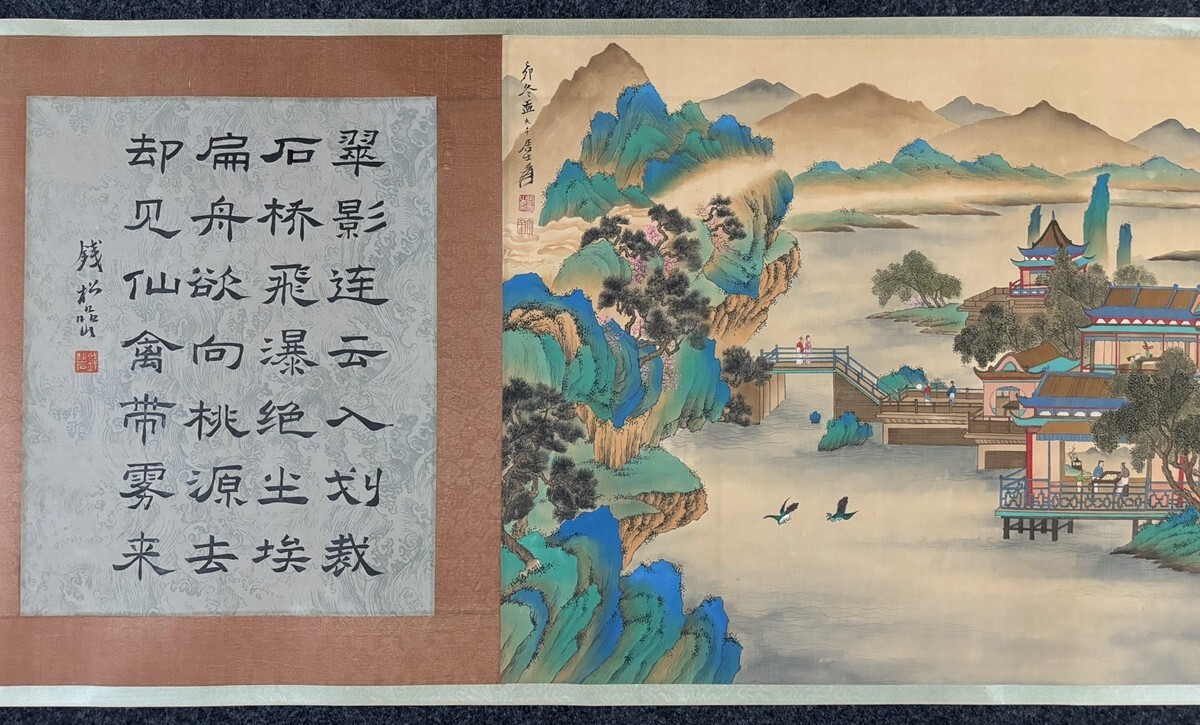 翠影连云入划裁
石桥飛瀑绝尘埃
扁舟欲向桃源去
却见仙禽带雾来
錢松嵒
卯冬孟大千居士爰